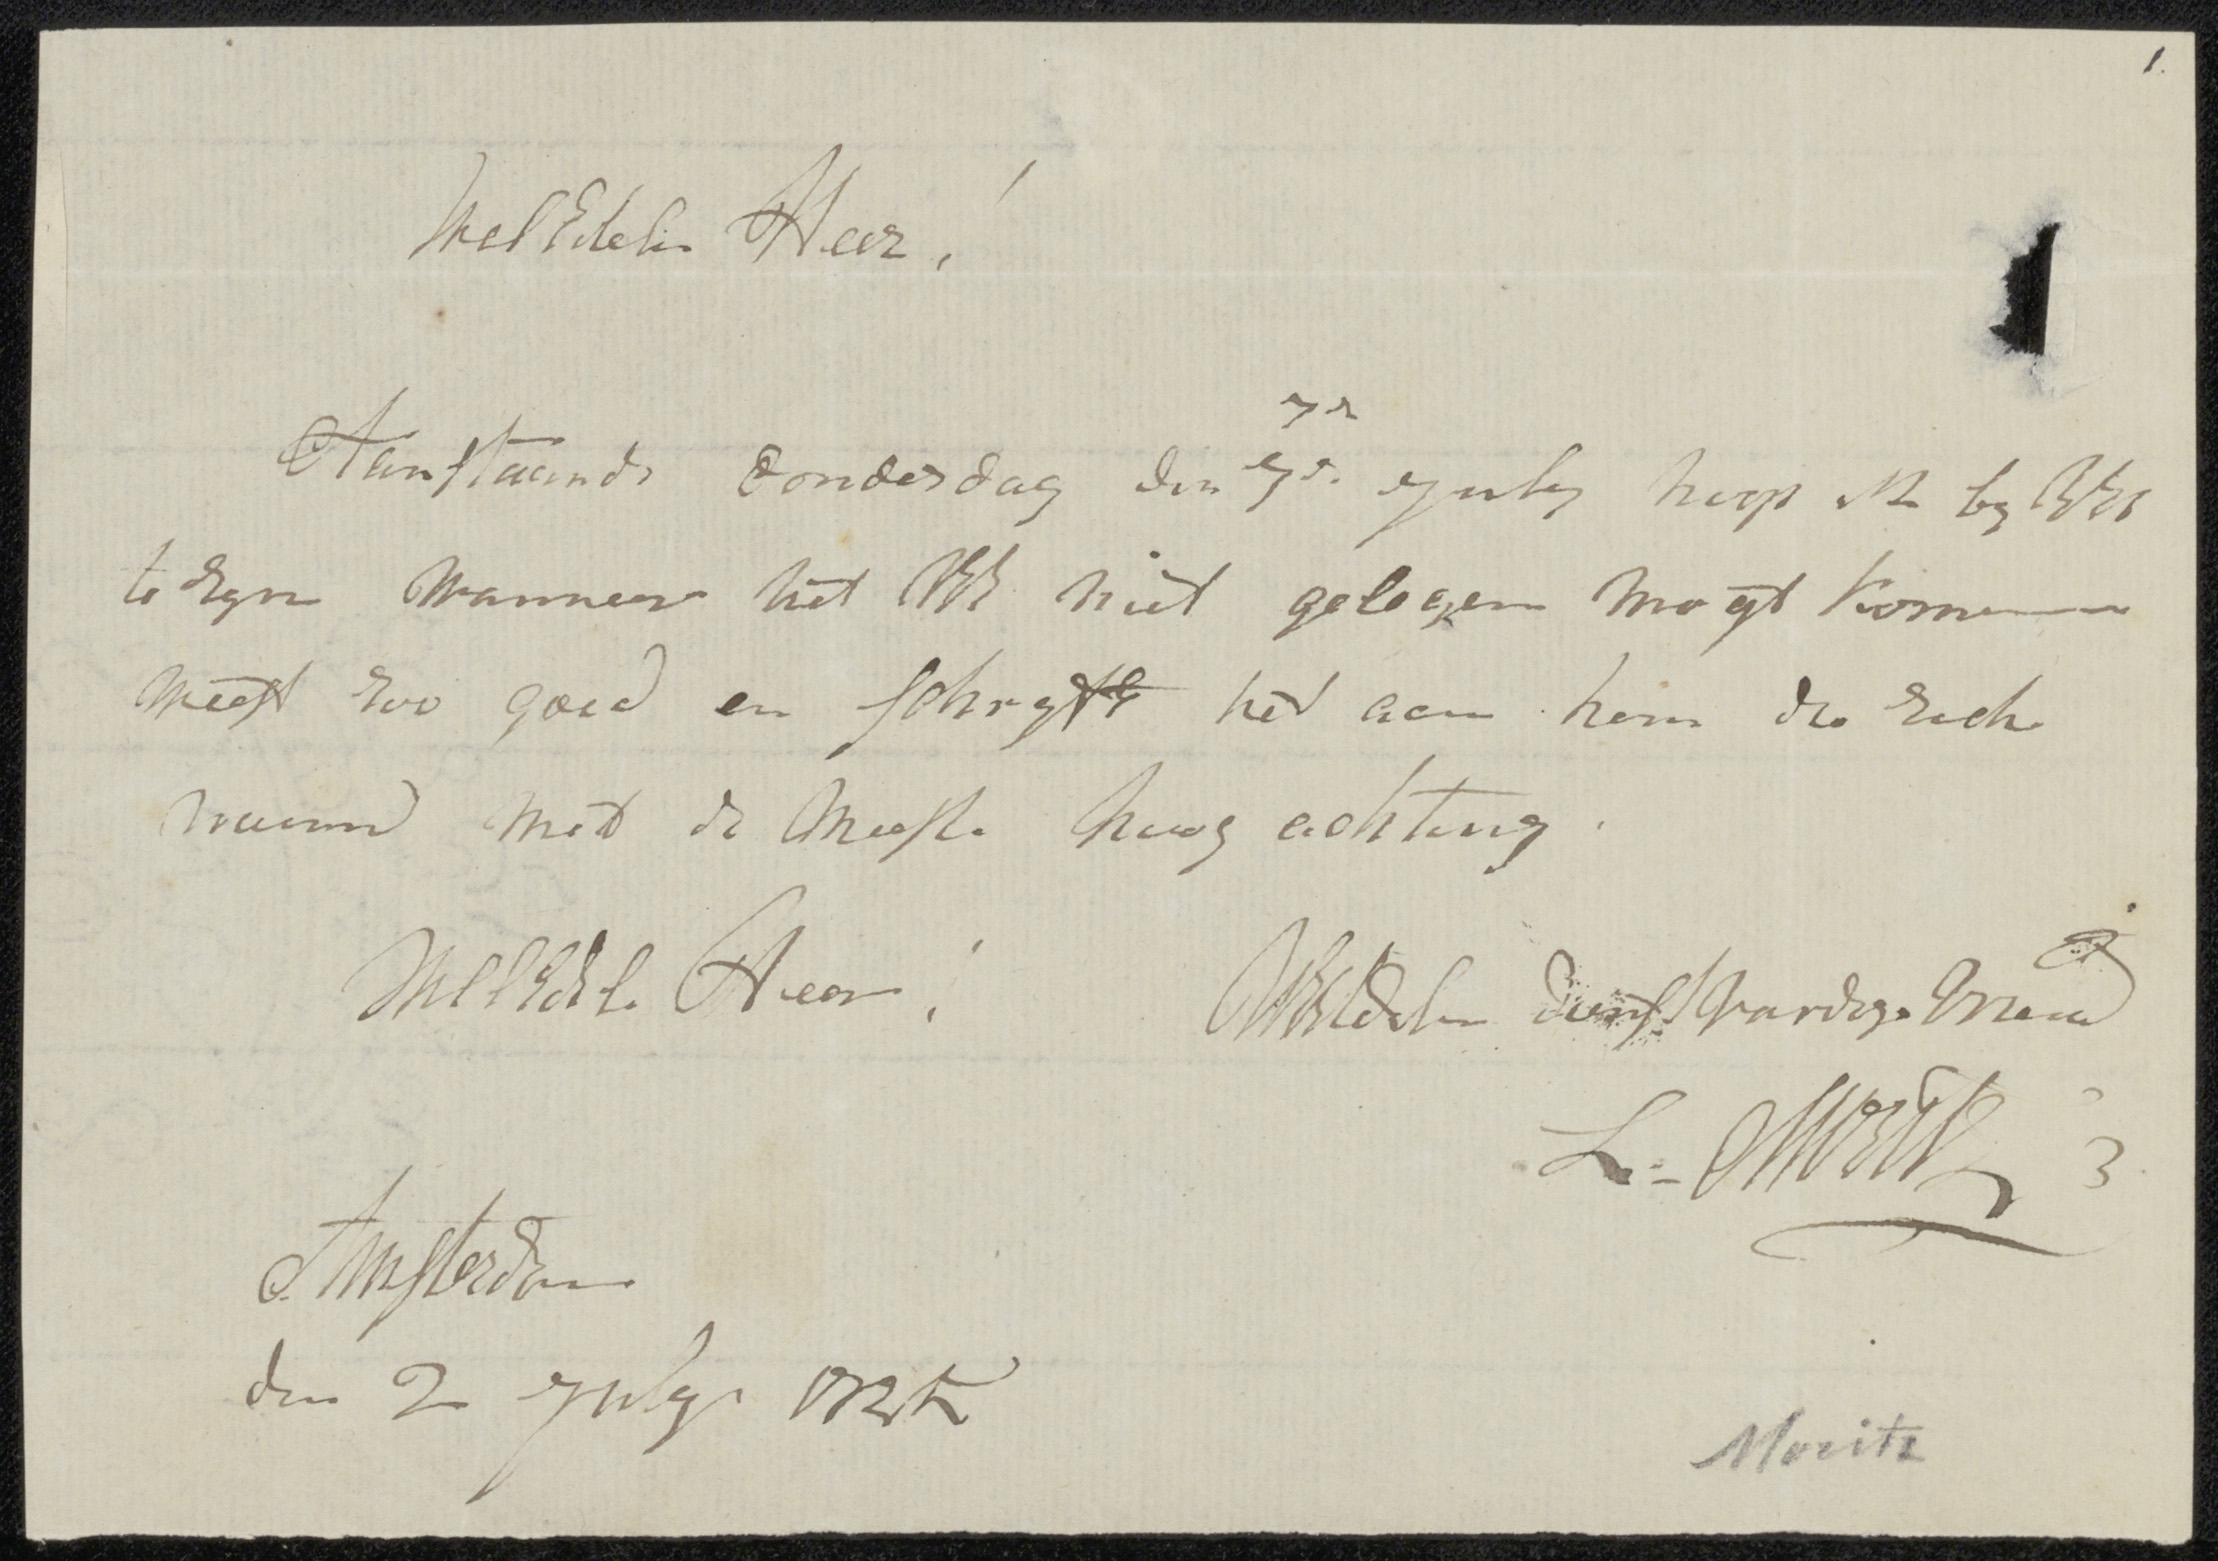 1.
WelEdele Heer!
7e
Aanstaande donderdag den 7e. july hoop ik by UE
te zyn wanneer het UE niet gelegen mogt komen
weest zoo goed en schryft het aan hem die zich
noemd met de meeste hoog achting.
WelEdele Heer!
UwelEdele dienstvaardige Vriend
L. Moritz
Amsterdam
den 2 july
Moritz